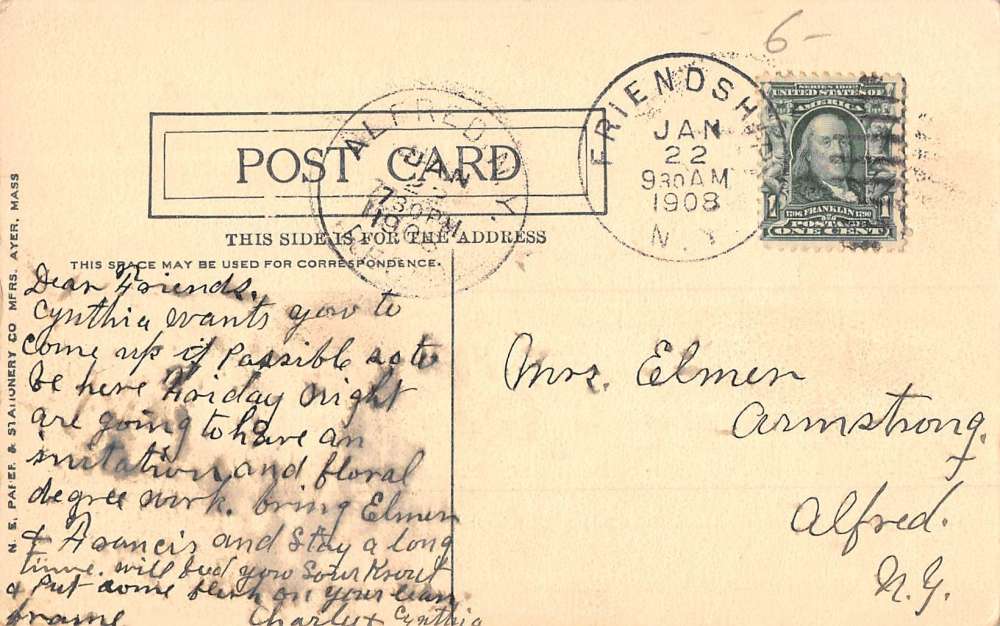 6-
FRIENDSHIP
JAN
22
930 AM
1908
N.Y.
SERIES 1902
UNITED STATES OF
AMERICA
1706 FRANKLIN 1790
1 ONE CENT
ALFRED N.Y.
JAN
730 PM
POST CARD
THIS SIDE IS FOR THE ADDRESS
THIS SPACE MAY BE USED FOR CORRESPONDENCE.
N. E. PAPER & STATIONERY CO MFRS. AYER, MASS
Dear Friends.
Cynthia wants yow to
come up if passible so to
be here Friday night
are going to have an
and floral
degree work. bring Elmer
& Francis and Stay a long
time. will feed yow Sour Krout
& Put some flesh on your lean
frame Charley & Cynthia
Mrs. Elmer
Armstrong.
Alfred.
N.Y.